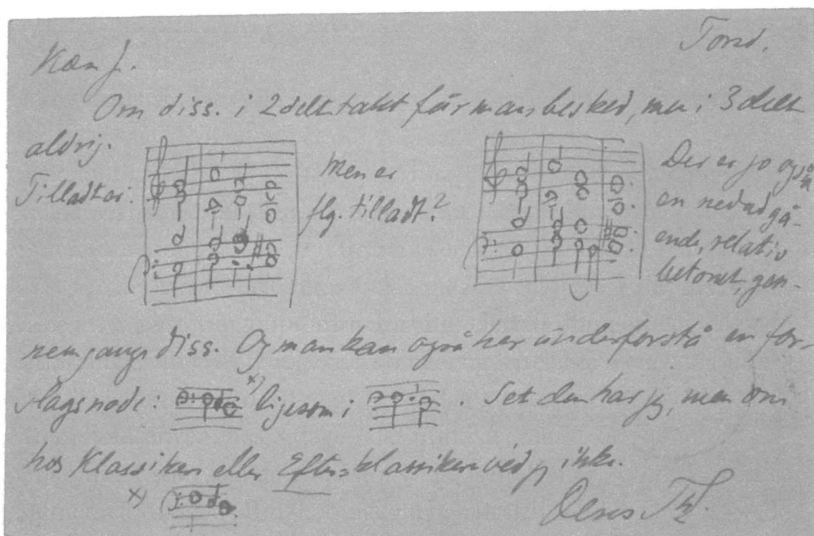 Torsd.
Kæm f.
Om diss. i 2delt takt får man besked, men i 3delt
aldrig.
Tilladt er:
men er
flg. tilladt?
Der er jo også
en nedadgå-
ende, relativ
betonet, gen-
nemgangsdiss. Og man kan også her underforstå en for-
slagsnode: x) ligesom i . Set den har jeg, men om
hos Klassikere eller Efterklassikere véd jeg ikke.
x)
Deres Th